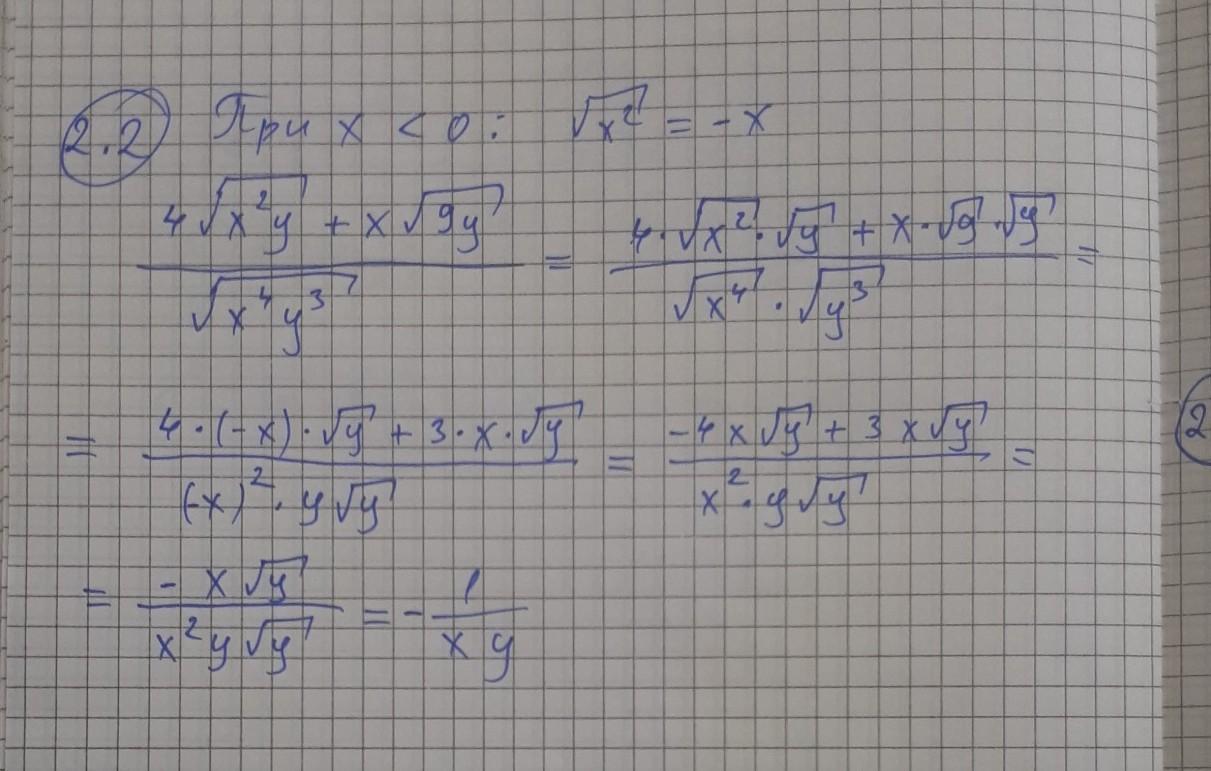 2.2 При x < 0: √x² = -x
(4√(x²y) + x√(9y)) / √(x⁴y³) = (4·√x²·√y + x·√9·√y) / (√x⁴·√y³) =
= (4·(-x)·√y + 3·x·√y) / ((-x)²·y√y) = (-4x√y + 3x√y) / (x²·y√y) =
= (-x√y) / (x²y√y) = -1/(xy)
2